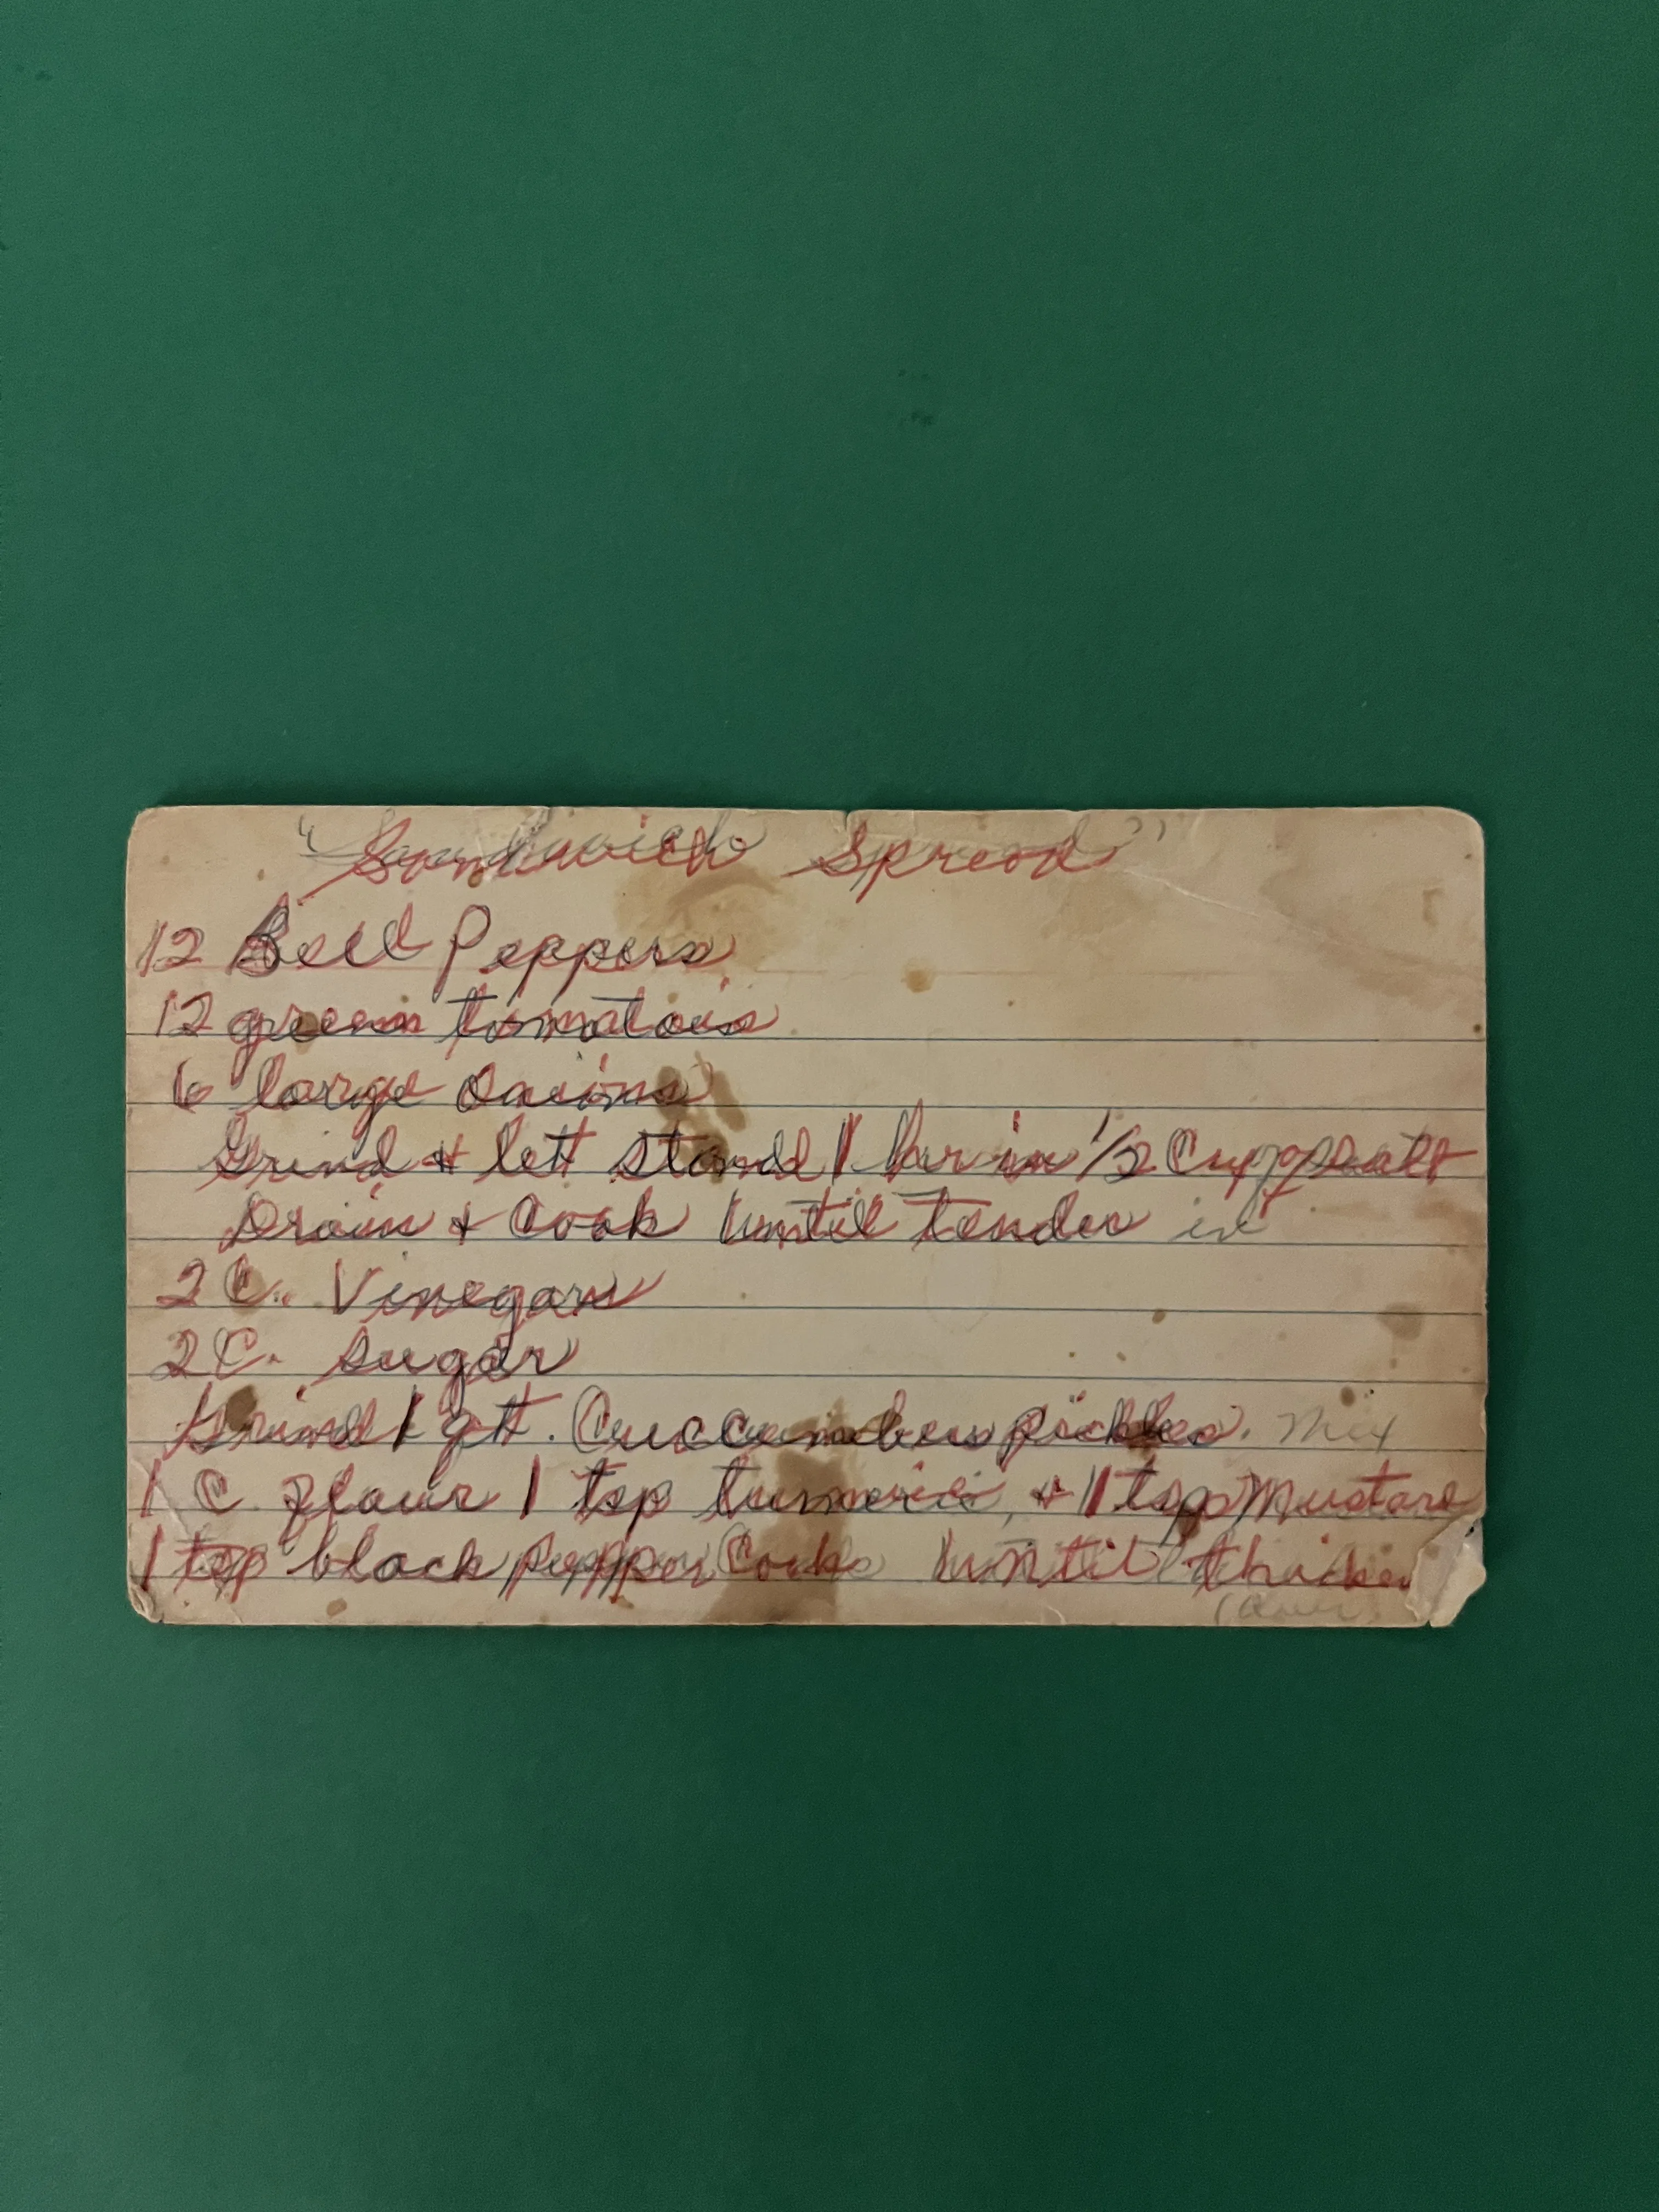 "Sandwich Spread"
12 Bell Peppers
12 green tomatoes
6 large onions
Grind & lett stand 1 hr in 1/2 Cup salt
Drain & Cook until tender in
2 C. Vinegar
2 C. Sugar
Grind 1 qt. Cuccumber pickles. Mix
1 C flour 1 tsp tumeric, & 1 tsp Mustard
1 tsp black pepper Cook until thicken
(over)